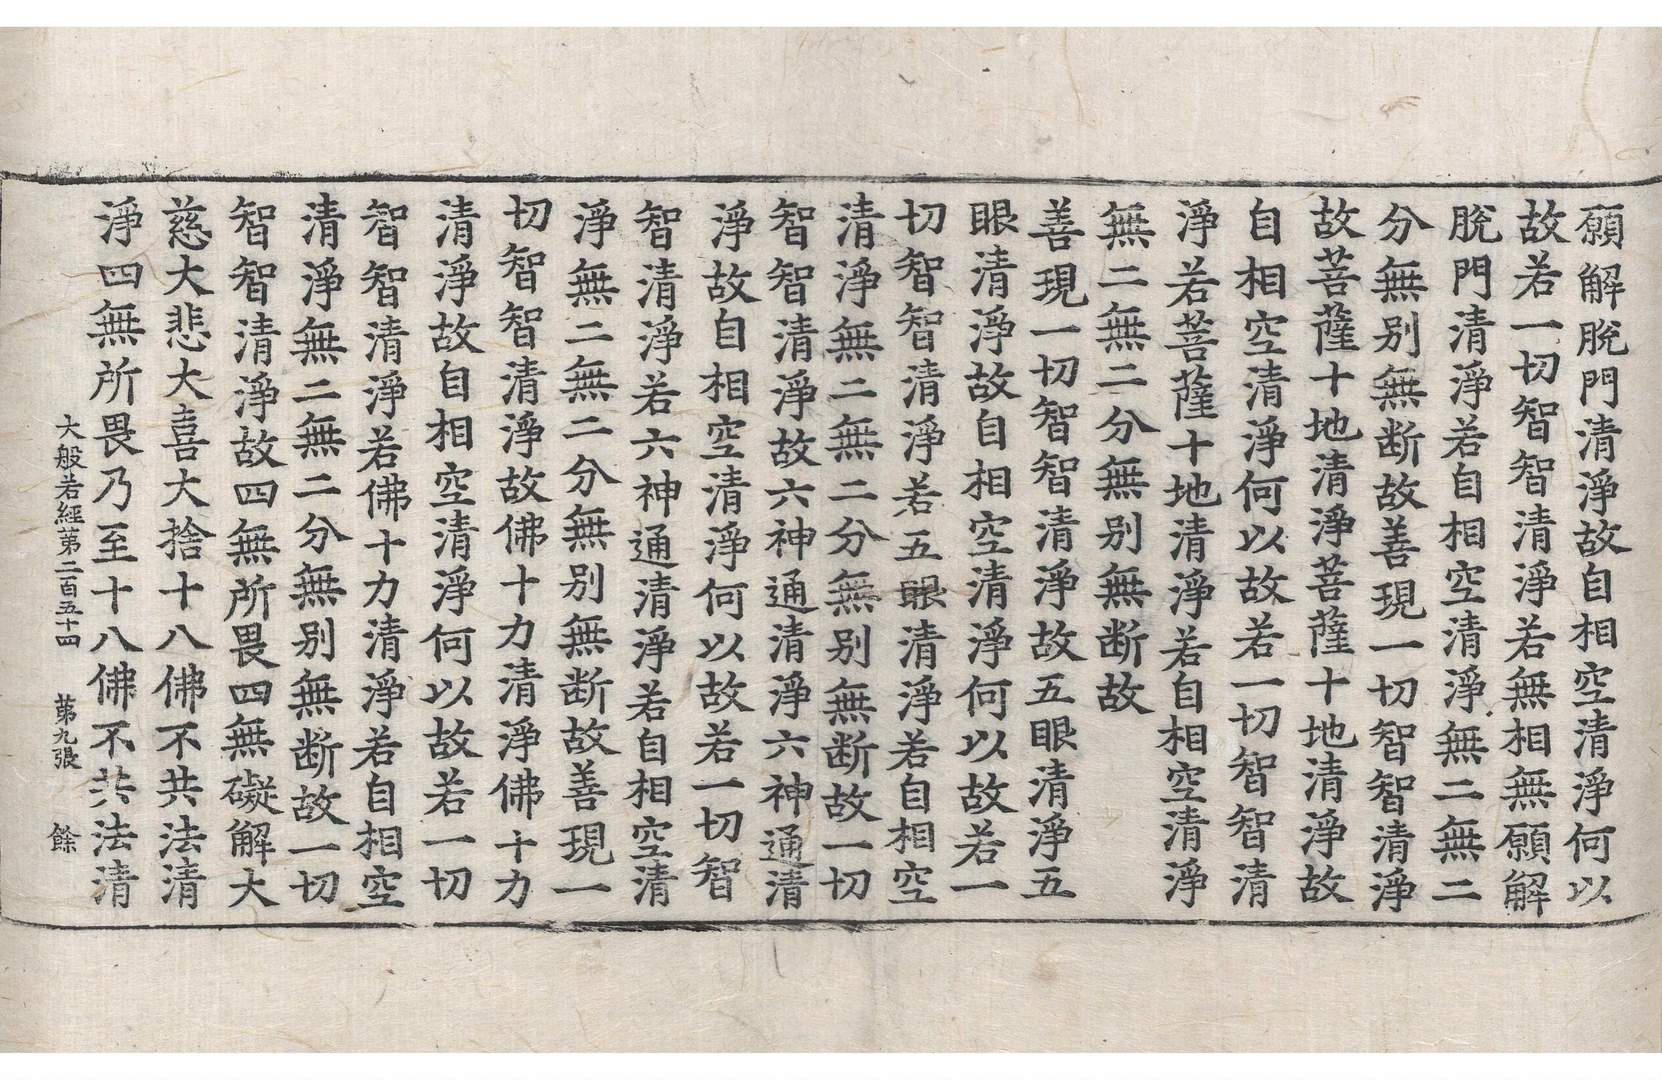 願解脫門清淨故自相空清淨何以
故若一切智智清淨若無相無願解
脫門清淨若自相空清淨無二無二
分無别無断故善現一切智智清淨
故菩薩十地清淨菩薩十地清淨故
自相空清淨何以故若一切智智清
淨若菩薩十地清淨若自相空清淨
無二無二分無别無断故
善現一切智智清淨故五眼清淨五
眼清淨故自相空清淨何以故若一
切智智清淨若五眼清淨若自相空
清淨無二無二分無别無断故一切
智智清淨故六神通清淨六神通清
淨故自相空清淨何以故若一切智
智清淨若六神通清淨若自相空清
淨無二無二分無别無断故善現一
切智智清淨故佛十力清淨佛十力
清淨故自相空清淨何以故若一切
智智清淨若佛十力清淨若自相空
清淨無二無二分無别無断故一切
智智清淨故四無所畏四無礙解大
慈大悲大喜大捨十八佛不共法清
淨四無所畏乃至十八佛不共法清
大般若經第二百五十四 第九張 餘